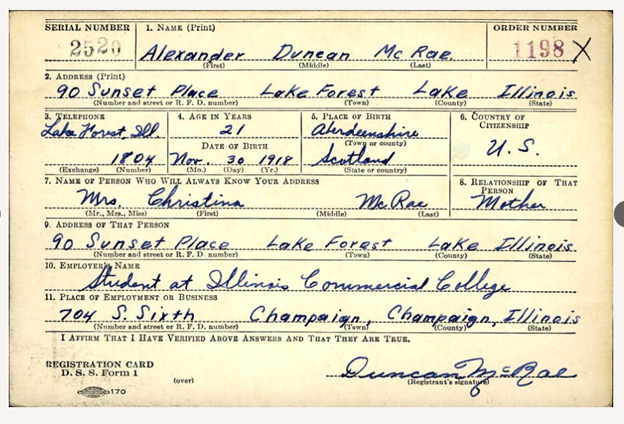 SERIAL NUMBER 1. NAME (Print) ORDER NUMBER
2520 Alexander Duncan Mc Rae. 1198 X
(First) (Middle) (Last)
2. ADDRESS (Print)
90 Sunset Place Lake Forest Lake Illinois
(Number and street or R. F. D. number) (Town) (County) (State)
3. TELEPHONE 4. AGE IN YEARS 5. PLACE OF BIRTH 6. COUNTRY OF CITIZENSHIP
Lake Forest, Ill. 21 Aberdeenshire U. S.
DATE OF BIRTH (Town or county)
1804 Nov. 30 1918 Scotland
(Exchange) (Number) (Mo.) (Day) (Yr.) (State or country)
7. NAME OF PERSON WHO WILL ALWAYS KNOW YOUR ADDRESS 8. RELATIONSHIP OF THAT PERSON
Mrs. Christina McRae Mother
(Mr., Mrs., Miss) (First) (Middle) (Last)
9. ADDRESS OF THAT PERSON
90 Sunset Place Lake Forest Lake Illinois.
(Number and street or R. F. D. number) (Town) (County) (State)
10. EMPLOYER'S NAME
Student at Illinois Commercial College
11. PLACE OF EMPLOYMENT OR BUSINESS
704 S. Sixth Champaign, Champaign, Illinois
(Number and street or R. F. D. number) (Town) (County) (State)
I AFFIRM THAT I HAVE VERIFIED ABOVE ANSWERS AND THAT THEY ARE TRUE.
REGISTRATION CARD
D. S. S. Form 1 (over) Duncan McRae
(Registrant's signature)
170